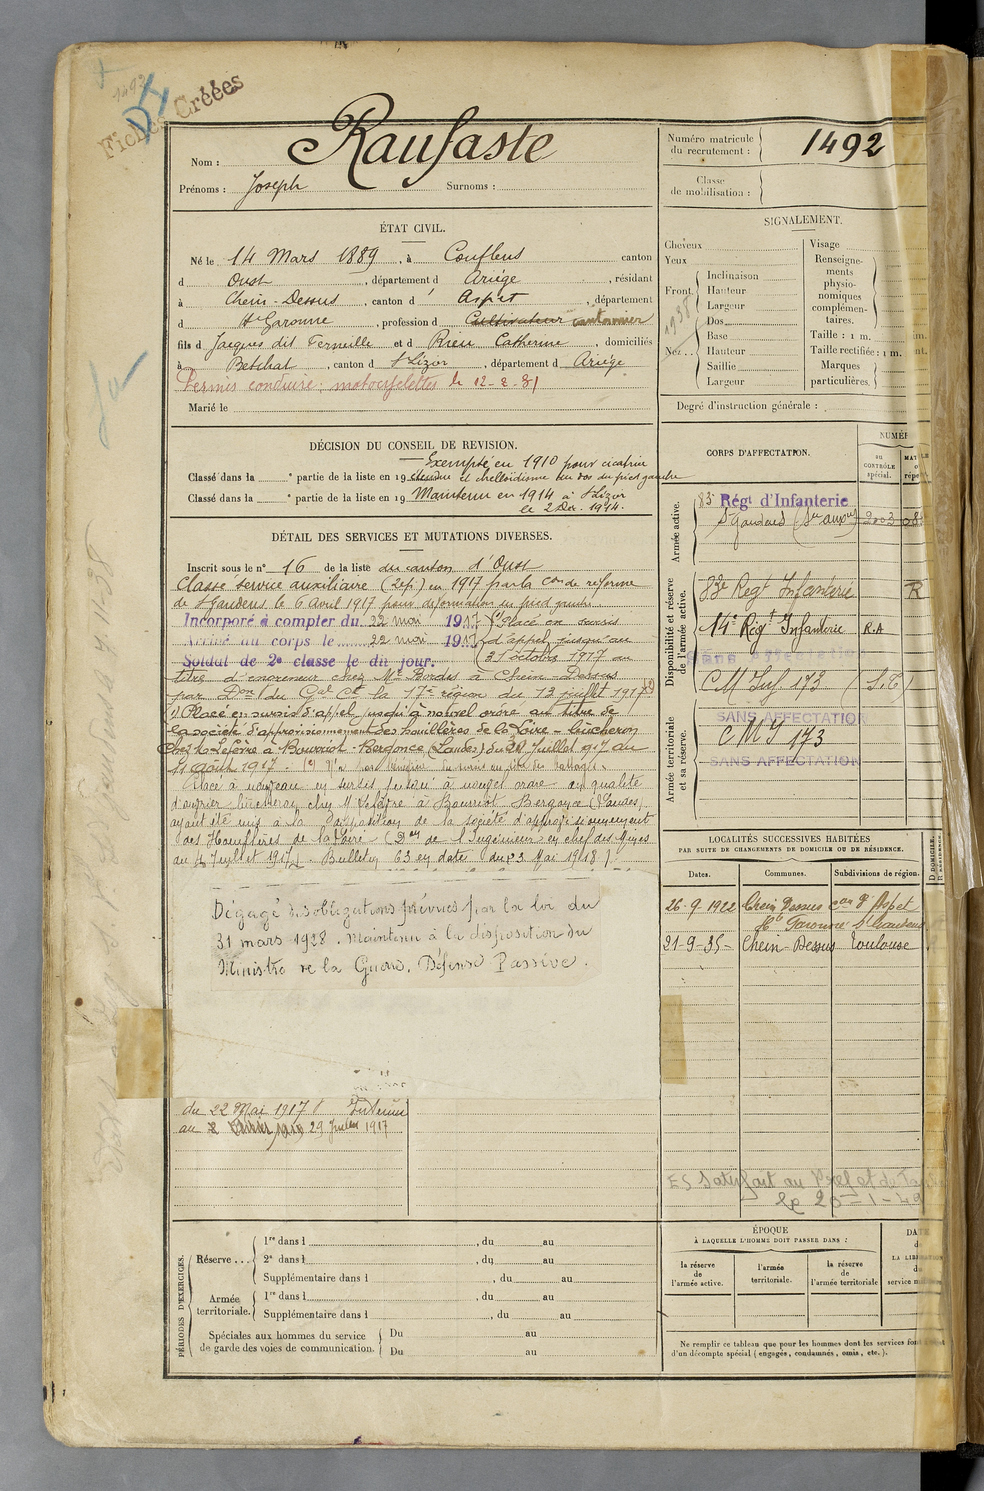 1492
Fiches Créées
Nom : Raufaste
Prénoms : Joseph Surnoms :
Numéro matricule du recrutement : 1492
Classe de mobilisation :
ÉTAT CIVIL.
Né le 14 Mars 1889, à Couflens canton
d Oust, département d Ariège, résidant
à Chein-Dessus, canton d' Aspet, département
d Hte Garonne, profession d Cultivateur cantonnier
fils d Jacques dit Ferneille et d Rieu Catherine, domiciliés
à Betchat, canton d St Lizier, département d Ariège
Permis conduire : motocyclettes le 12-2-31
Marié le
SIGNALEMENT.
Cheveux
Yeux
Front. Inclinaison
Hauteur
Largeur
Nez.. Dos
Base
Hauteur
Saillie
Largeur
Visage
Renseignements physionomiques complémentaires.
Taille : 1 m.
Taille rectifiée : 1 m.
Marques particulières.
1938
Degré d'instruction générale :
DÉCISION DU CONSEIL DE REVISION.
Exempté en 1910 pour cicatrice
Classé dans la e partie de la liste en 19 étendue et chelloïdisme au bas du pied gauche
Classé dans la e partie de la liste en 19 Maintenu en 1914 à St Lizier
le 2 Déc. 1914.
DÉTAIL DES SERVICES ET MUTATIONS DIVERSES.
Inscrit sous le n° 16 de la liste du canton d'Oust
Classé service auxiliaire (2e pie) en 1917 par la Con de réforme
de St Gaudens le 6 Avril 1917 pour déformation du pied gauche
Incorporé à compter du 22 mai 1917 Placé en sursis
Arrivé au corps le 22 mai 1917 d'appel jusqu'au
Soldat de 2e classe le dit jour. 31 octobre 1917 au
titre d'engreneur chez Mr Bordes à Chein-Dessus
par Don du Gal Ct la 17e région du 13 juillet 1917
1) Placé en sursis d'appel jusqu'à nouvel ordre au titre de
la société d'approvisionnement des houillères de la Loire - bûcheron
chez Mr Lefèvre à Bourriot-Bergonce (Landes) du 28 Juillet 917 du
11 Août 1917.
Placé à nouveau en sursis jusqu'à nouvel ordre en qualité
d'ouvrier bûcheron chez M Lefèvre à Bourriot Bergonce (Landes)
ayant été mis à la disposition de la société d'approvisionnement
des Houillères de la Loire (Don de l'Ingénieur en chef des Mines
du 4 Juillet 1917). Bulletin 63 en date du 23 Mai 1918).
Dégagé des obligations prévues par la loi du
31 mars 1928. Maintenu à la disposition du
Ministre de la Guerre. Défense Passive.
du 22 Mai 1917 Intérieur
au 29 Juillet 1917
CORPS D'AFFECTATION.
NUMÉR
au CONTRÔLE spécial.
Armée active.
83e Régt d'Infanterie
St Gaudens (Sce aux)
Disponibilité et réserve de l'armée active.
83e Regt Infanterie R
14e Régt Infanterie R.A
Sans Affectation
C M Inf 173 (S.T)
Armée territoriale et sa réserve.
SANS AFFECTATION
C M I 173
SANS AFFECTATION
LOCALITÉS SUCCESSIVES HABITÉES
PAR SUITE DE CHANGEMENTS DE DOMICILE OU DE RÉSIDENCE.
Dates. Communes. Subdivisions de région.
26-9-1922 Chein Dessus Con d'Aspet
Hte Garonne St Gaudens
21-9-35- Chein-Dessus Toulouse
ES Satisfait au
le 20-1-49
PÉRIODES D'EXERCICES.
Réserve... 1re dans l , du au
2e dans l , du au
Supplémentaire dans l , du au
Armée territoriale. 1re dans l , du au
Supplémentaire dans l , du au
Spéciales aux hommes du service de garde des voies de communication. Du au
Du au
ÉPOQUE
À LAQUELLE L'HOMME DOIT PASSER DANS :
la réserve de l'armée active.
l'armée territoriale.
la réserve de l'armée territoriale
Ne remplir ce tableau que pour les hommes dont les services font
d'un décompte spécial (engagés, condamnés, omis, etc.).